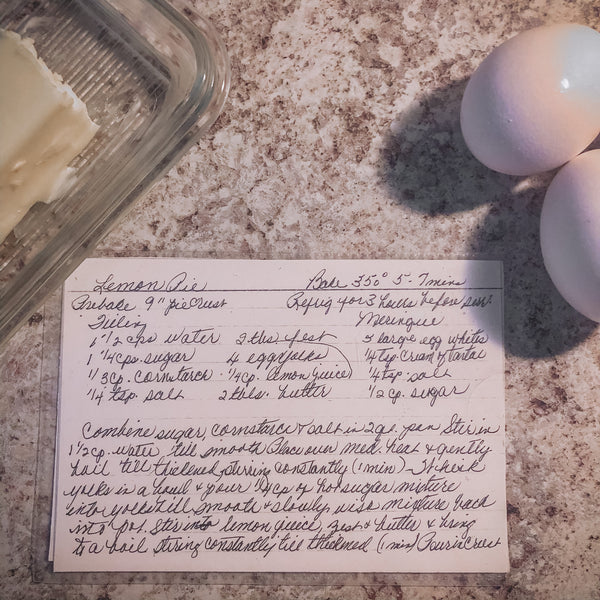 Lemon Pie Bake 350° 5-7 mins
Prebake 9" pie crust Refrig 4 or 3 hours before serv.
Filling Meringue
1 1/2 cps water 2 tbs zest 3 large egg whites
1 1/4 cps. sugar 4 egg yolks 1/4 tsp. cream of tartar
1/3 cp. cornstarch 1/4 cp. lemon juice 1/4 tsp. salt
1/4 tsp. salt 2 tbls. butter 1/2 cp. sugar
Combine sugar, cornstarch & salt in 2 qt. pan Stir in
1 1/2 cp. water till smooth Place over med. heat & gently
boil till thickened, stirring constantly (1 min)
yolks in a bowl & pour 1/4 cp of hot sugar mixture
into yolks till smooth & slowly mixture back
into pot. Stir into lemon juice, zest & butter & bring
to a boil stiring constantly till thickened (1 min) Pour in Crust